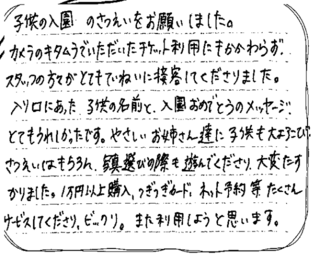 子供の入園 のさつえいをお願いしました。
カメラのキタムラでいただいたチケット利用にもかかわらず、
スタッフの方々がとてもていねいに接客してくださりました。
入り口にあった 子供の名前と、入園おめでとうのメッセージ、
とてもうれしかったです。やさしいお姉さん達に子供も大よろこび。
さつえいはもちろん、写真選びの際も遊んでくださり、大変たす
かりました。1万円以上購入、つぎつぎカード、ネット予約等 たくさん
サービスしてくださり、ビックリ。また利用しようと思います。